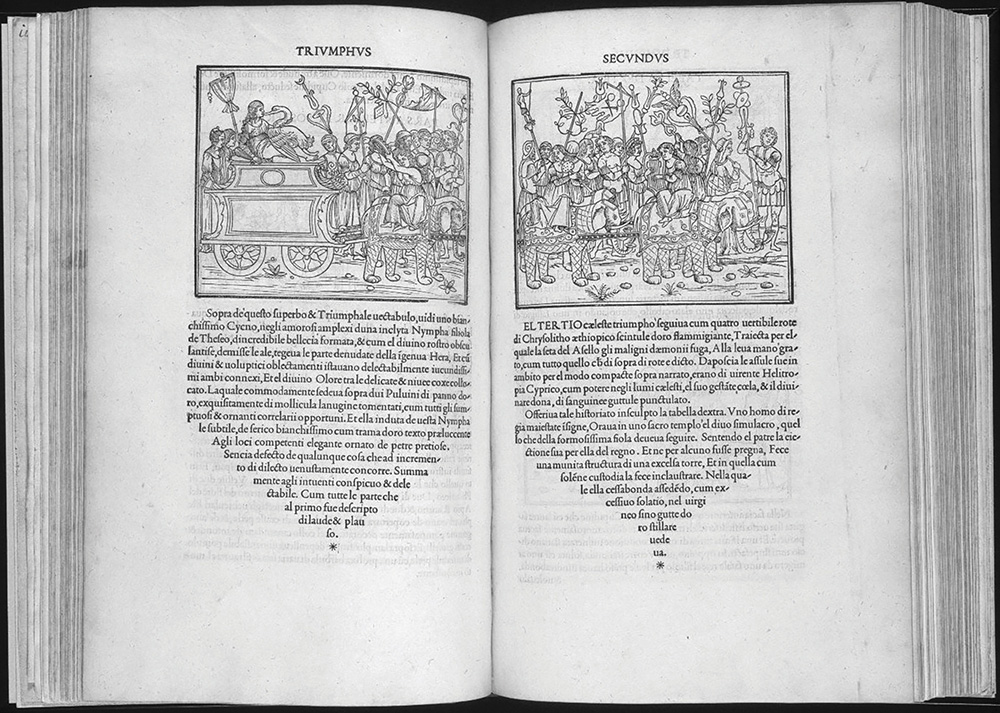 TRIVMPHVS
Sopra de questo superbo & Triumphale uectabulo, uidi uno bian-
chissimo Cycno, negli amorosi amplexi duna inclyta Nympha filiola
de Theseo, dincredibile bellecia formata, & cum el diuino rostro obscu
lantise, demisse le ale, tegeua le parte denudate della igenua Hera, Et cū
diuini & uoluptici oblectamenti istauano delectabilmente iucundissi-
mi ambi connexi, Et el diuino Olore tra le delicate & niuee coxe collo-
cato. Laquale commodamente sedeua sopra dui Puluini di panno do-
ro, exquisitamente di mollicula lanugine tomentati, cum tutti gli sum-
ptuosi & ornanti correlarii opportuni. Et ella induta de uesta Nympha
le subtile, de serico bianchissimo cum trama doro texto præluccente
Agli loci competenti elegante ornato de petre pretiose.
Sencia defecto de qualunque cosa che ad incremen-
to di dilecto uenustamente concorre. Summa
mente agli intuenti conspicuo & dele
ctabile. Cum tutte le parte che
al primo fue descripto
di laude & plau
so.
*
SECVNDVS
EL TERTIO cæleste triumpho seguiua cum quatro uertibile rote
di Chrysolitho æthiopico scintule doro flammigiante, Traiecta per el
quale la seta del Asello gli maligni dæmonii fuga, Alla leua mano gra-
to, cum tutto quello ch'di sopra di rote e dicto. Daposcia le assule sue in
ambito per el modo compacte sopra narrato, erano di uirente Helitro-
pia Cyprico, cum potere negli lumi cælesti, el suo gestāte cœla, & il diui-
nare dona, di sanguinee guttule punctulato.
Offeriua tale historiato insculpto la tabella dextra. Vno homo di re-
gia maiestate isigne, Oraua in uno sacro templo el diuo simulacro, quel
lo che della formosissima fiola deueua seguire. Sentendo el patre la eie-
ctione sua per ella del regno. Et ne per alcuno fusse pregna, Fece
una munita structura di una excelsa torre, Et in quella cum
solēne custodia la fece inclaustrare. Nella qua-
le ella cessabonda assedēdo, cum ex-
cessiuo solatio, nel uirgi
neo sino gutte do
ro stillare
uede
ua.
*